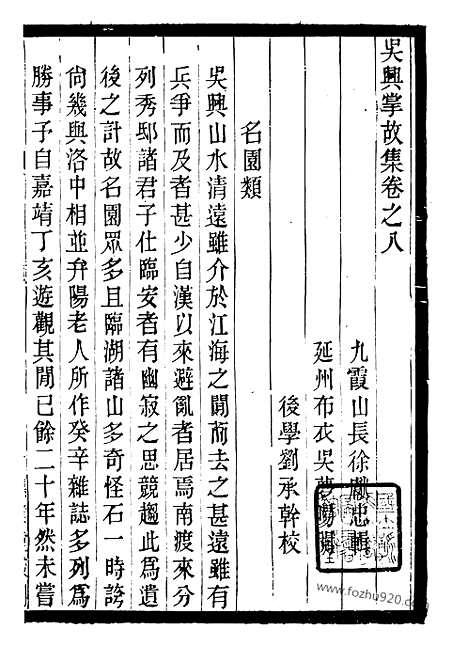 吳興掌故集卷之八
九霞山長徐獻忠輯
延州布衣吳夢暘
後學劉承幹校
名園類
吳興山水清遠雖介於江海之閒而去之甚遠雖有
兵爭而及者甚少自漢以來避亂者居焉南渡來分
列秀邸諸君子仕臨安者有幽寂之思競趨此爲遺
後之計故名園眾多且臨湖諸山多奇怪石一時誇
尙幾與洛中相並弁陽老人所作癸辛雜誌多列爲
勝事予自嘉靖丁亥遊觀其閒已餘二十年然未嘗
www.fozhu920.com